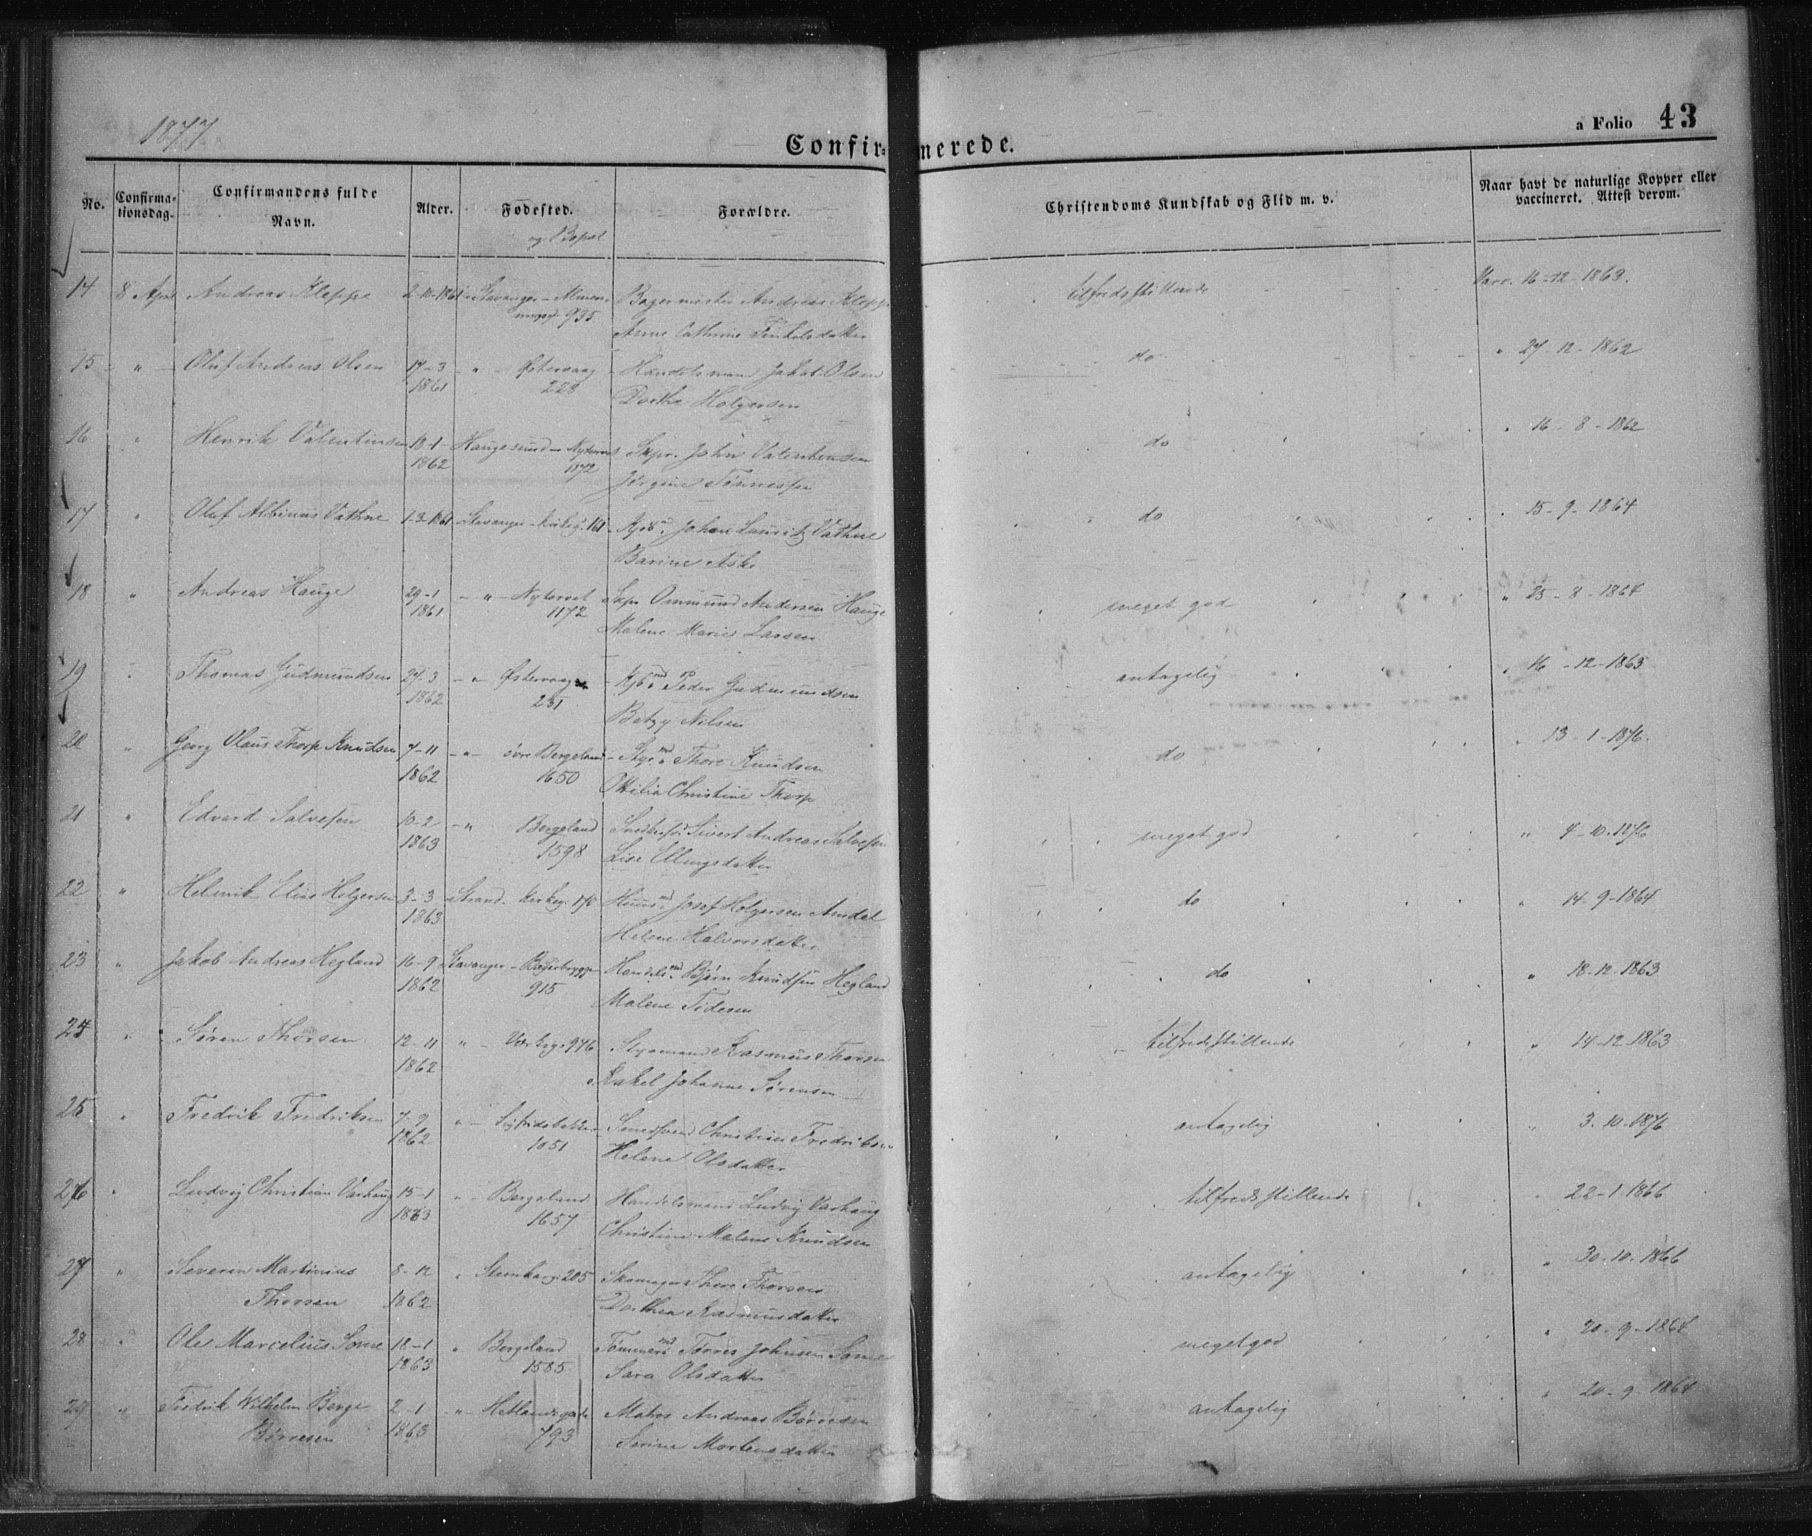 1877
a Folio 43
Confirmerede.
No. Confirma-tionsdag. Confirmandens fulde Navn. Alder. Fødested. og Bopæl Forældre. Christendoms Kundskab og Flid m. v. Naar havt de naturlige Kopper eller vaccineret. Attest derom.
14 8 April Andreas Kleppe 2-10-1861 Stavanger - tilfredsstillende Vacc. 16-12-1862.
935 Bagermester Andreas Kleppe
Anne Cathrine
15 " Oluf Andreas Olsen 17-3 - " - Østervaag Handelsmand Jakob Olsen do " 27-12-1862
1861 228 Dorthe Holgersen
16 " Henrik Valentinsen 13-1 Haugesund - Nytorvet Skpr. John Valentinsen do " 16-8-1862
1862 1172 Jørgine Tønnessen
17 " Oluf Albinus Vathne 1-3-1861 Stavanger - Kirkeg. 161 Johan Lauritz Vathne do " 15-9-1864
Barine Aske
18 " Andreas Hauge 29-1 - " - Nytorvet Skpr Ommund Andersen Hauge meget god " 25-8-1864
1861 1172 Malene Marie Larsen
19 " Thomas Gudmundsen 27-3 - " Østervaag Kjbmd Peder Gudmundsen antagelig " 16-12-1863
1862 231 Betzy Nilsen
20 " Georg Olaus Thorp Knudsen 7-11 - " - søre Bergeland Thore Knudsen do " 13-1-1876.
1862 1650 Otilia Christine Thorp
21 " Edvard Salvesen 10-2 - " Bergeland Sivert Andreas Salvesen meget god " 4-10-1876
1863 1598 Lise Ellingsdatter
22 " Helmik Elias Holgersen 3-3 Strand. Kirkeg. Josef Holgersen Amdal do " 14-9-1864
1863 Helene Halvorsdatter
23 " Jakob Andreas Hegland 16-9 Stavanger - Handelsmd Bjørn Knudsen Hegland do " 18-12-1863
1862 915 Malene
24 " Søren Thorsen 12-11 " - 976 Styrmand Rasmus Thorsen tilfredsstillende " 14-12-1863
1862 Rakel Johanne Sørensen
25 " Fredrik Fredriksen 7-9 " - Christian Fredriksen antagelig " 3.10.1876
1862 1051 Helene Olsdatter
26 " Ludvig Christian Varhaug 15-1 " - Bergeland Handelsmand Ludvig Varhaug tilfredsstillende " 22-1-1866
1863 1657 Christine Malene Knudsen
27 " Severin Martinius 8-12 " Steenkarg. 205 Skomager Thore Thorsen antagelig " 30.10.1866
Thorsen 1862 Dorthea Rasmusdatter
28 " Ole Marcelius Some 18-1 " Bergeland Tømmermd Tørres Johnsen Some meget god " 20-9-1864
1863 1585 Sara Olsdatter
29 " Fredrik Wilhelm Berge 2-1 - " - Hetlandsgade Matros Andreas Børresen antagelig " 20-9-1864
Børresen 1863 793 Serine Mortensdatter